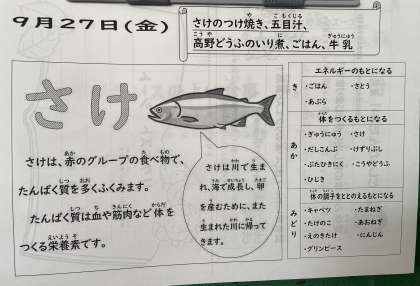 9月27日(金)
さけのつけ焼き、五目汁、
高野どうふのいり煮、ごはん、牛乳
さけ
さけは、赤のグループの食べ物で、
たんぱく質を多くふくみます。
たんぱく質は血や筋肉など体を
つくる栄養素です。
さけは川で生ま
れ、海で成長し、卵
を産むために、また
生まれた川に帰って
きます。
き
エネルギーのもとになる
・ごはん ・さとう
・あぶら
あか
体をつくるもとになる
・ぎゅうにゅう ・さけ
・だしこんぶ ・けずりぶし
・ぶたひきにく ・こうやどうふ
・ひじき
みどり
体の調子をととのえるもとになる
・キャベツ ・たまねぎ
・たけのこ ・あおねぎ
・えのきたけ ・にんじん
・グリンピース